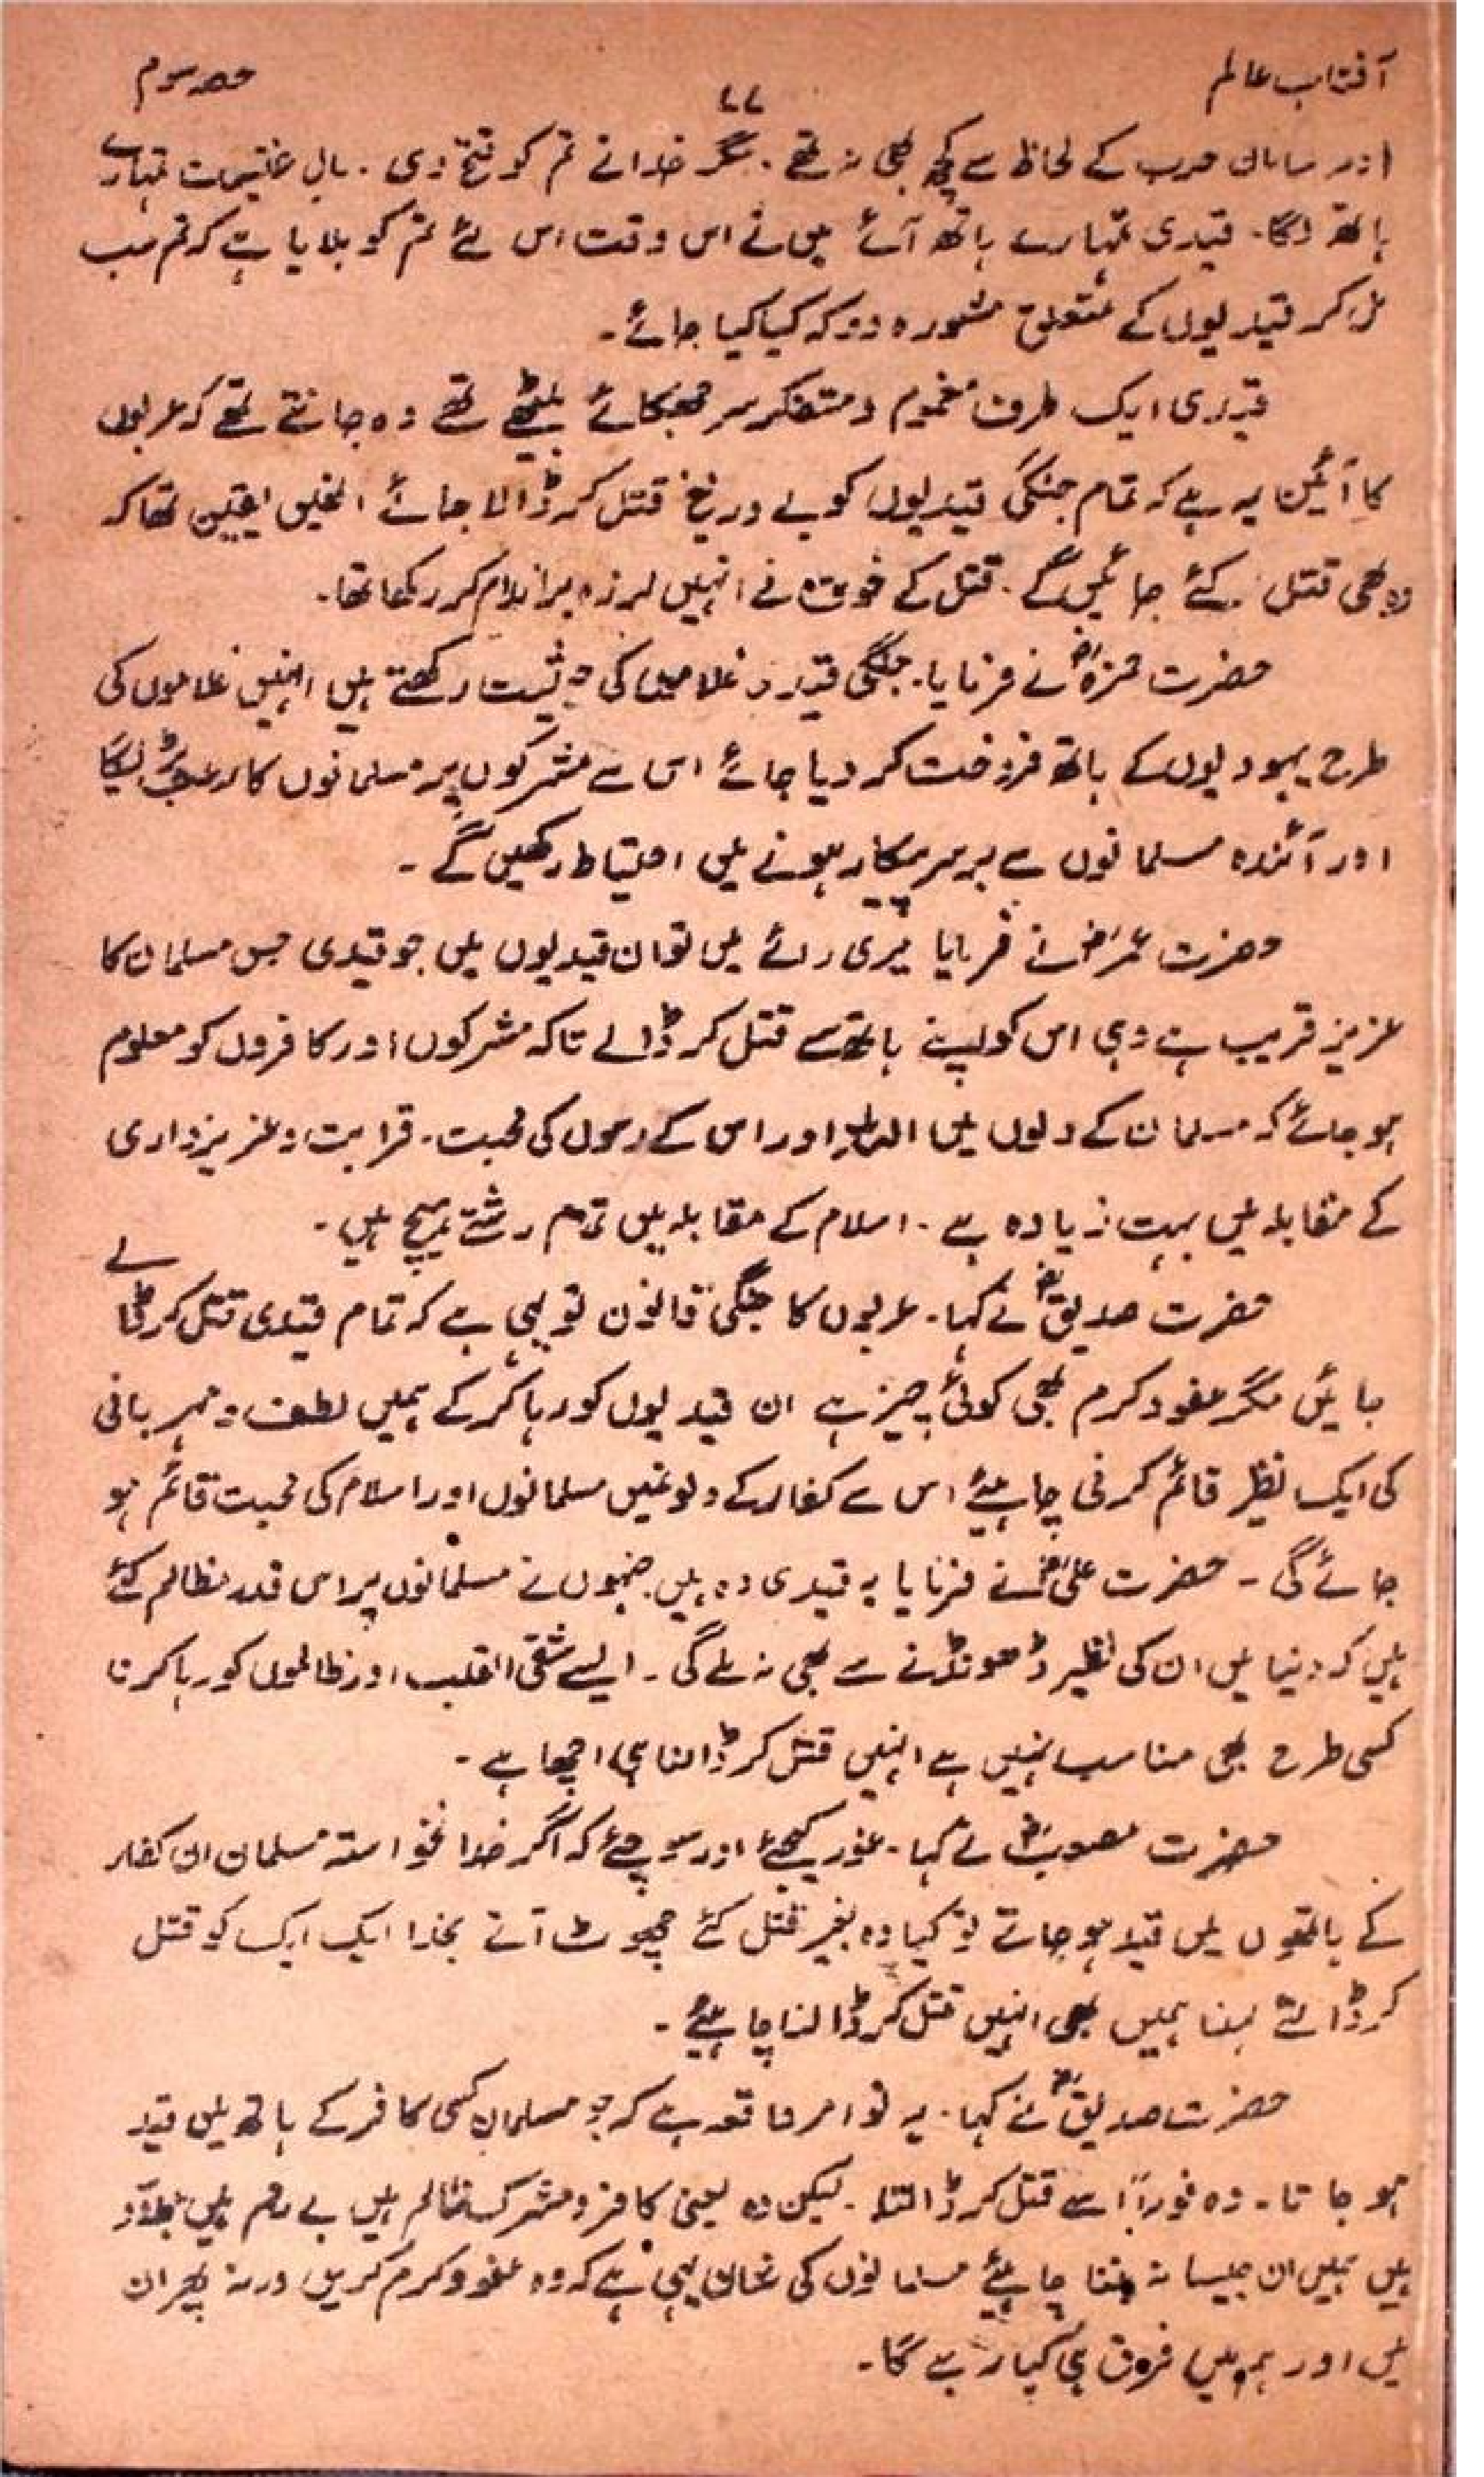 آفتاب عالم ۷۷ حصہ سوم
اور سامان حرب کے لحاظ سے کچھ بھی نہ تھے ۔ مگر خدا نے تم کو فتح دی ۔ مالِ غنیمت تمہارے
ہاتھ لگا۔ قیدی تمہارے ہاتھ آئے میں نے اس وقت اس لئے تم کو بلایا ہے کہ تم سب
مل کر قیدیوں کے متعلق مشورہ دو کہ کیا کیا جائے ۔
قیدی ایک طرف مغموم و متفکر سر جھکائے بیٹھے تھے وہ جانتے تھے کہ عربوں
کا آئین یہ ہے کہ تمام جنگی قیدیوں کو بے دریغ قتل کر ڈالا جائے انھیں یقین تھا کہ
وہ بھی قتل کئے جائیں گے ۔ قتل کے خوف نے انہیں لرزہ براندام کر رکھا تھا۔
حضرت حمزہؓ نے فرمایا۔ جنگی قیدی غلاموں کی حیثیت رکھتے ہیں انہیں غلاموں کی
طرح یہودیوں کے ہاتھ فروخت کر دیا جائے اس سے مشرکوں پر مسلمانوں کا رعب پڑیگا
اور آئندہ مسلمانوں سے برسرپیکار ہونے میں احتیاط رکھیں گے ۔
حضرت عمرؓ نے فرمایا میری رائے میں تو ان قیدیوں میں جو قیدی جس مسلمان کا
عزیز قریب ہے وہی اس کو اپنے ہاتھ سے قتل کر ڈالے تاکہ مشرکوں اور کافروں کو معلوم
ہو جائے کہ مسلمان کے دلوں میں اللہ اور اس کے رسول کی محبت ۔ قرابت و عزیزداری
کے مقابلہ میں بہت زیادہ ہے ۔ اسلام کے مقابلہ میں تمام رشتے ہیچ ہیں ۔
حضرت صدیقؓ نے کہا ۔ عربوں کا جنگی قانون تو یہی ہے کہ تمام قیدی قتل کر ڈالے
جائیں مگر عفو و کرم بھی کوئی چیز ہے ان قیدیوں کو رہا کر کے ہمیں لطف و مہربانی
کی ایک نظیر قائم کرنی چاہیئے اس سے کفار کے دلونمیں مسلمانوں اور اسلام کی محبت قائم ہو
جائے گی ۔ حضرت علیؓ نے فرمایا یہ قیدی وہ ہیں جنہوں نے مسلمانوں پر اس قدر مظالم کئے
ہیں کہ دنیا میں ان کی نظیر ڈھونڈنے سے بھی نہ ملے گی ۔ ایسے شقی القلب اور ظالموں کو رہا کرنا
کسی طرح بھی مناسب نہیں ہے انہیں قتل کر ڈالنا ہی اچھا ہے ۔
حضرت مصعبؓ نے کہا ۔ غور کیجئے اور سوچئے کہ اگر خدا نخواستہ مسلمان ان کفار
کے ہاتھوں میں قید ہو جاتے تو کیا وہ بغیر قتل کئے چھوٹ آتے بخدا ایک ایک کو قتل
کر ڈالتے لہذا ہمیں بھی انہیں قتل کر ڈالنا چاہیئے ۔
حضرت صدیقؓ نے کہا ۔ یہ تو امر واقعہ ہے کہ جو مسلمان کسی کافر کے ہاتھ میں قید
ہو جاتا ۔ وہ فوراً اسے قتل کر ڈالتا ۔ لیکن وہ یعنی کافر و مشرک ظالم ہیں بے رحم ہیں جلاد
ہیں ہمیں ان جیسا نہ بننا چاہیئے مسلمانوں کی شان یہی ہے کہ وہ عفو و کرم کریں ورنہ پھر ان
میں اور ہم میں فرق ہی کیا رہے گا۔